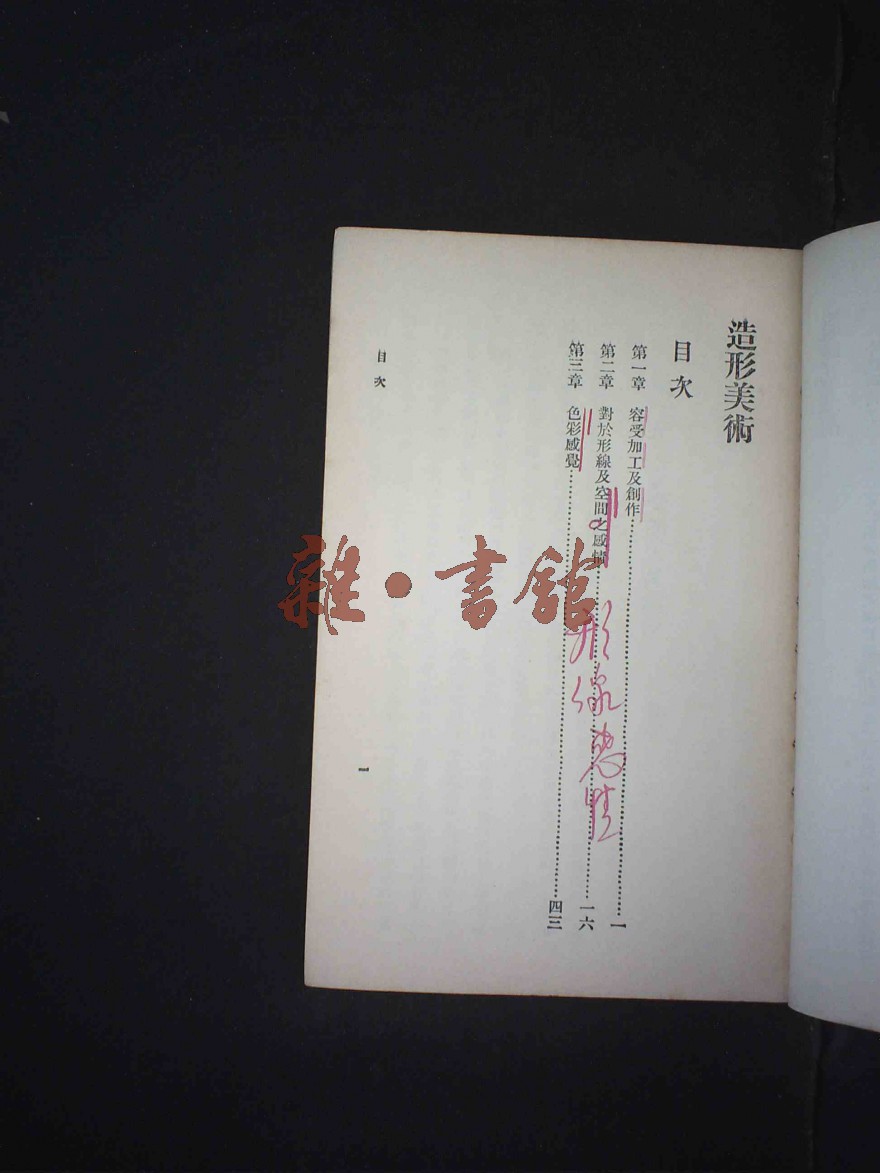 造形美術
目次
第一章 容受加工及創作…………一
第二章 對於形線及空間之感情…………一六
第三章 色彩感覺…………四三
形線
目次
一
雜·書館